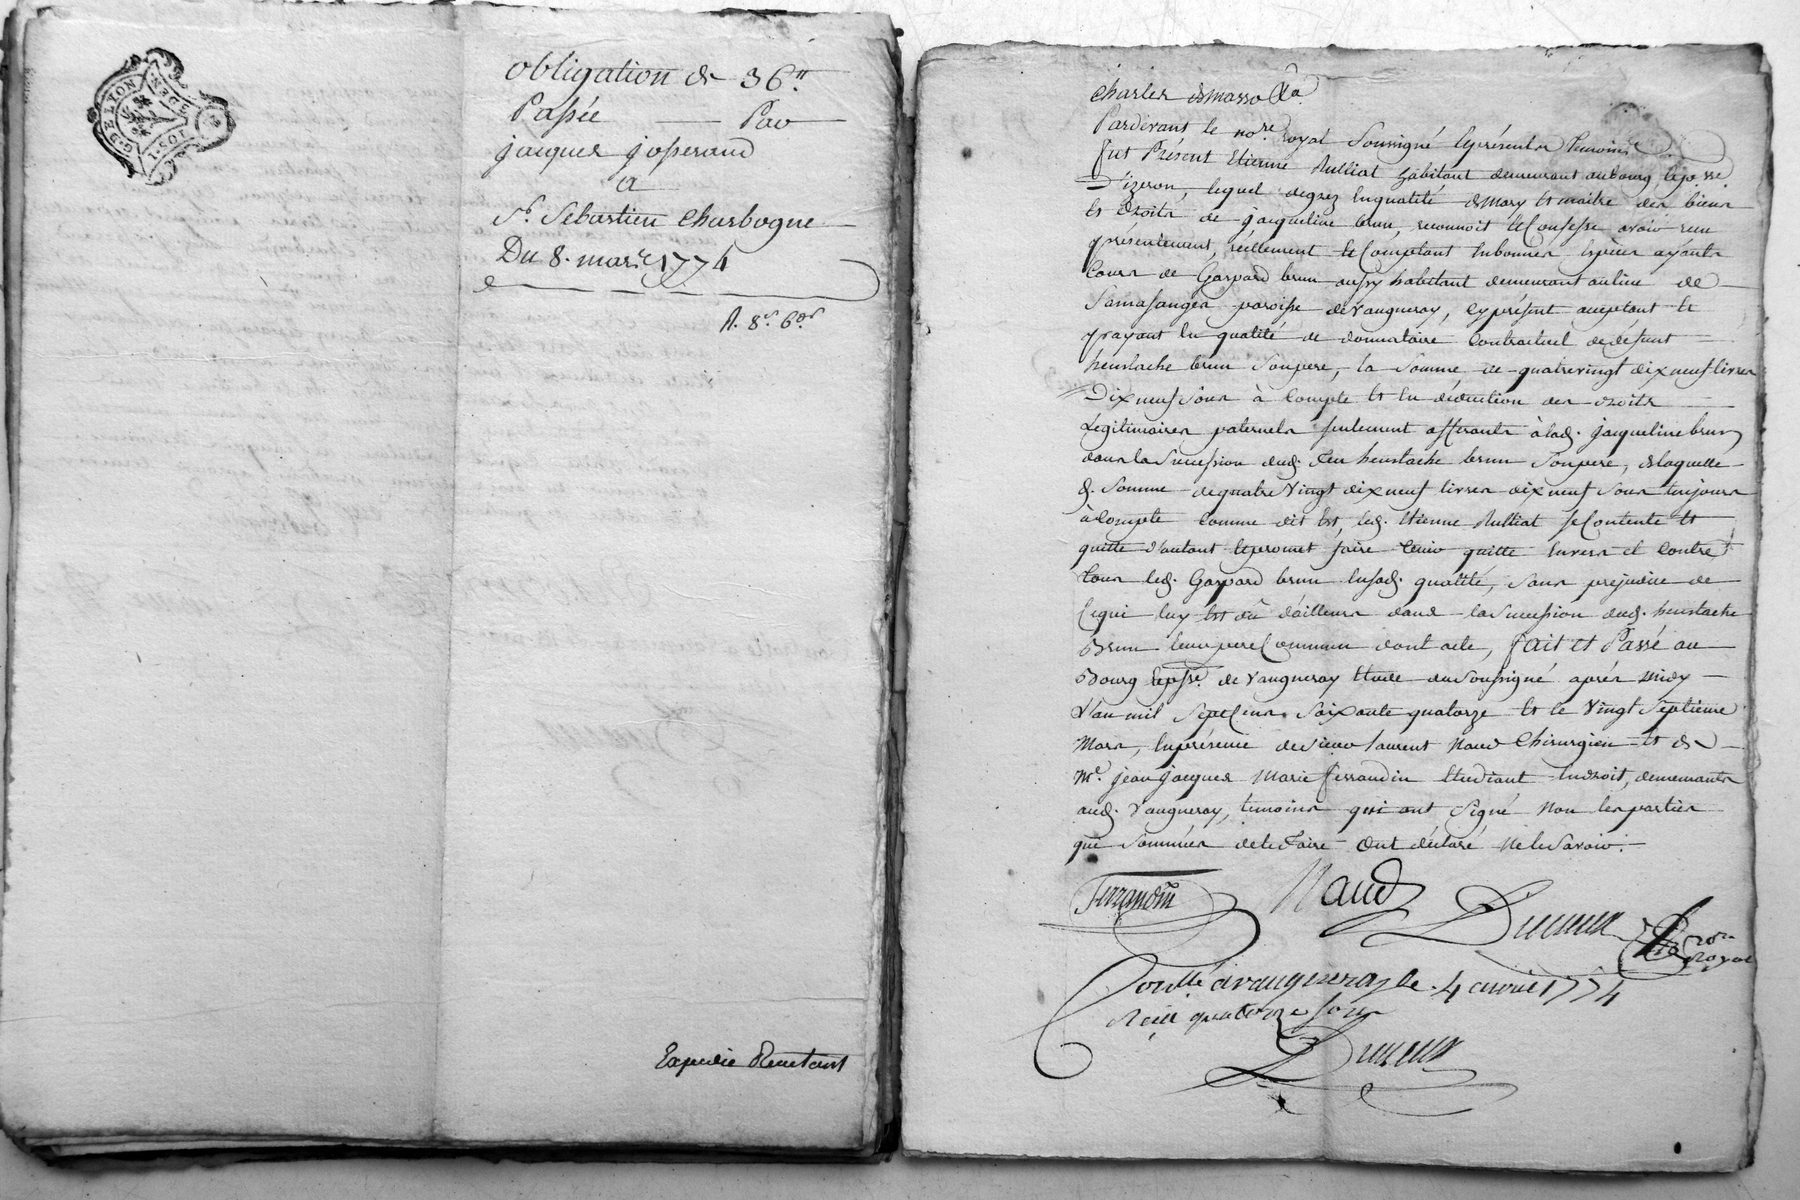 G. DE LYON
MOYEN
1. SOL
obligation de 36ᵗᵗ
Passée — Par
jacques josserand
a
Sʳ. Sebastien Charbogne
Du 8. mars 1774
R. 8ˢ. 6ᵈˢ
Expedié
Charles
Pardevant le noʳᵉ royal soussigné & présents temoins
fut Présent Etienne Rulliat habitant demeurant au bourg & posse
D'izeron, lequel degrez en qualité de mary et maitre des biens
et droits de jacqueline brun, reconnoit & Confesse avoir reçu
présentement, réellement & Comptant en bonnes especes ayants
Cours de Gaspard brun aussy habitant demeurant au lieu de
Samasanges paroisse de vaugneray, cy présent acceptant et
payant en qualité de donnataire Contractuel de défunt
heustache brun Son pere, la Somme de quatre vingt dix neuf livres
Dix neuf Sous à Compte et en déduction des droits
Légitimaires paternels seulement afferants à lad. jacqueline brun
dans la Succession dud. feu heustache brun Son pere, de laquelle
d. Somme de quatre Vingt dix neuf livres dix neuf Sous toujours
à Compte Comme dit Est, led. Etienne Rulliat se Contente et
quitte d'autant & promet faire tenir quitte Envers et Contre
tous led. Gaspard brun en sad. qualité, Sans prejudice de
Ce qui luy Est dû d'ailleurs dans la Succession dud. heustache
Brun leur pere Commun dont acte, fait et Passé au
Bourg & posse. de Vaugneray Etude du Soussigné aprés midy
L'an mil Sept Cens Soixante quatorze et le Vingt Septieme
Mars, En présence de Sieur laurent Naud Chirurgien et de
Mᵉ. jean jacques Marie ferrandin Etudiant En droit, demeurants
aud. Vaugneray, temoins qui ont Signé Non les parties
que Sommées de le faire Ont déclaré Ne le Savoir.
Ferrandin Naud noʳᵉ
Royal
Conllé à vaugneray le 4 avril 1774
Reçu quatorze sous